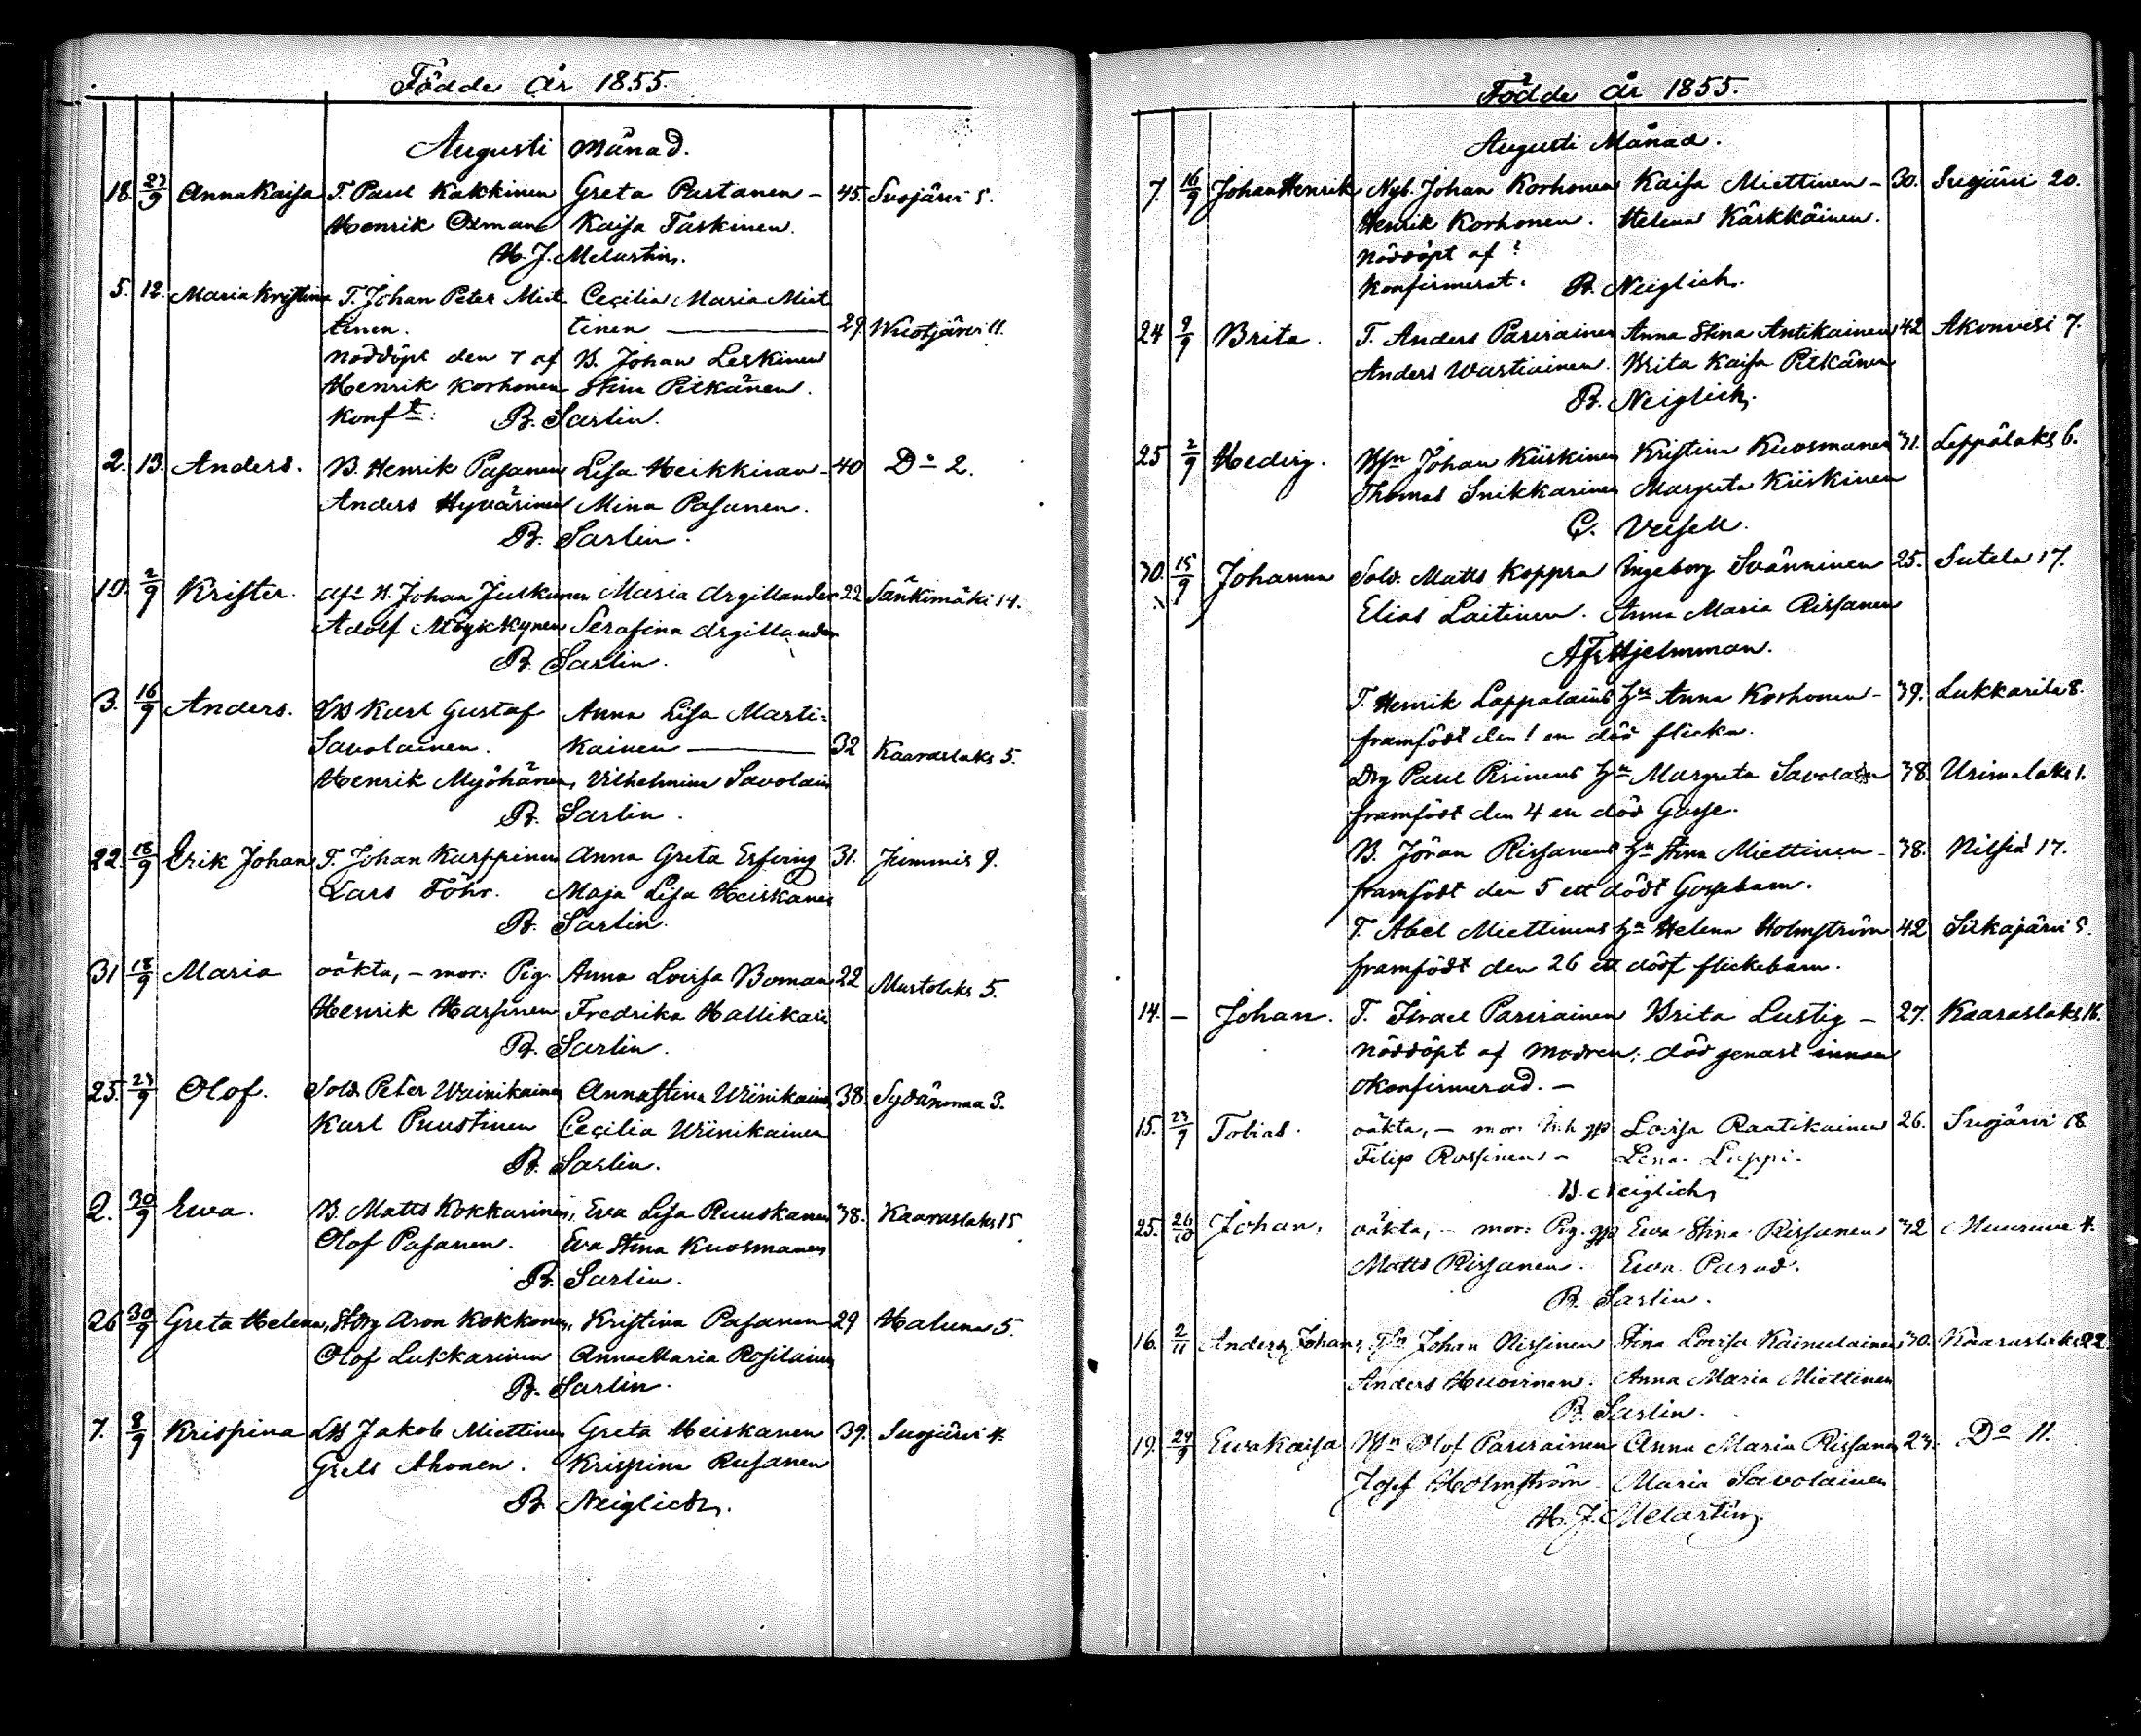 Födde år 1855.
Augusti månad.
18. 23/9 Anna Kaisa T. Paul Kakkinen Greta Partanen - 45. Suojärvi 5.
Henrik Oxman Kaisa Taskinen.
H. J. Melartin.
5. 12. Maria Kristina T. Johan Peter Miet Cecilia Maria Miet
tinen. tinen 29 Wuotjärvi 11.
nöddöpt den 7 af B. Johan Leskinen
Henrik Korhonen Stina Pitkänen.
Konft: B. Sarlin.
2. 13. Anders. B. Henrik Pasanen Lisa Heikkinen 40 Do 2.
Anders Hyvärinen Mina Pasanen.
B. Sarlin.
19. 2/9 Krister. B. Johan Juskunen Maria Argillander 22 Sänkimäki 14.
Adolf Möykkynen Serafina Argillander
B. Sarlin.
3. 16/9 Anders. LB Karl Gustaf Anna Lisa Marti-
Savolainen. kainen 32 Kaaraslaks 5.
Henrik Myöhänen, Vilhelmina Savolain
B. Sarlin.
22. 18/9 Erik Johan T. Johan Karppinen Anna Greta Esfving 31. Jummis 9.
Lars Föhr. Maja Lisa Heiskanen
B. Sarlin.
31 18/9 Maria oäkta, - mor: Pig. Anna Lovisa Boman 22 Murtolaks 5.
Henrik Hassinen Fredrika Hallikain
B. Sarlin.
25. 23/9 Olof. Sold. Peter Wainikainen Anna Stina Wiinikain 38. Sydänmaa 3.
Karl Puustinen Cecilia Wiinikainen
B. Sarlin.
2. 30/9 Ewa. B. Matts Kokkarinen, Eva Lisa Ruuskanen 38. Kaaraslaks 15
Olof Pasanen. Eva Stina Kuosmanen
B. Sarlin.
26 30/9 Greta Helena, Stdrg Aron Kokkonen, Kristina Pasanen 29 Haluna 5.
Olof Lukkarinen Anna Maria Rosilainen
B. Sarlin.
7. 8/9 Krispina LB Jakob Miettinen Greta Heiskanen 39. Suojärvi 4.
Grels Ahonen. Krispina Rusanen
B. Neiglick.
Födde år 1855.
Augusti Månad.
7. 16/9 Johan Henrik Nyb. Johan Korhonen Kaisa Miettinen - 30. Suojärvi 20.
Henrik Korhonen. Helena Kärkkäinen.
nöddöpt af?
konfirmerat. B. Neiglick.
24 9/9 Brita. T. Anders Parviainen Anna Stina Antikainen 42 Akonvesi 7.
Anders Wartiainen. Brita Kaisa Pitkänen
B. Neiglick.
25 2/9 Hedvig. Bsn Johan Kiiskinen Kristina Kuosmanen 31. Leppälaks 6.
Thomas Snikkarinen Margreta Kiiskinen
C. Vesell.
30. 15/9 Johanna Sold. Matts Koppra Ingeborg Svänninen 25. Sutela 17.
Elias Laitinen. Anna Maria Rissanen
A. F. Hjelmman.
T. Henrik Lappalains Hu Anna Korhonen - 39. Lukkarila 8.
framfödt den 1 en död flicka.
Drg Paul Pirinens Hu Margreta Savolain 38. Urimalaks 1.
framfödt den 4 en död Gosse.
B. Jöran Rissanens Hu Stina Miettinen - 38. Nilsiä 17.
framfödt den 5 ett dödt Gossebarn.
T. Abel Miettinens Hu Helena Holmström 42 Sirkajärvi 5.
framfödt den 26 ett dödt flickebarn.
14. - Johan. T. Israel Parviainen Brita Lustig - 27. Kaaraslaks 16.
nöddöpt af modren; död genast innan
konfirmerad. -
15. 23/9 Tobias. oäkta, - mor: Lovisa Raatikainen 26. Suojärvi 18
Filip Rossinen - Lena Luppi.
B. Neiglick
25. 26/10 Johan, oäkta, - mor: Pig. Ewa Stina Rissanen 32 Muuruve 4.
Matts Rissanen. Ewa Parad.
B. Sarlin.
16. 2/11 Anders Johan, Johan Nissinen Stina Lovisa Kainulainen 30. Kaaraslaks 22.
Anders Huovinen. Anna Maria Miettinen
B. Sarlin.
19. 24/9 Ewa Kaisa Bsn Olof Parviainen Anna Maria Rissanen 23. Do 11.
Josef Holmström Maria Savolainen
H. J. Melartin.